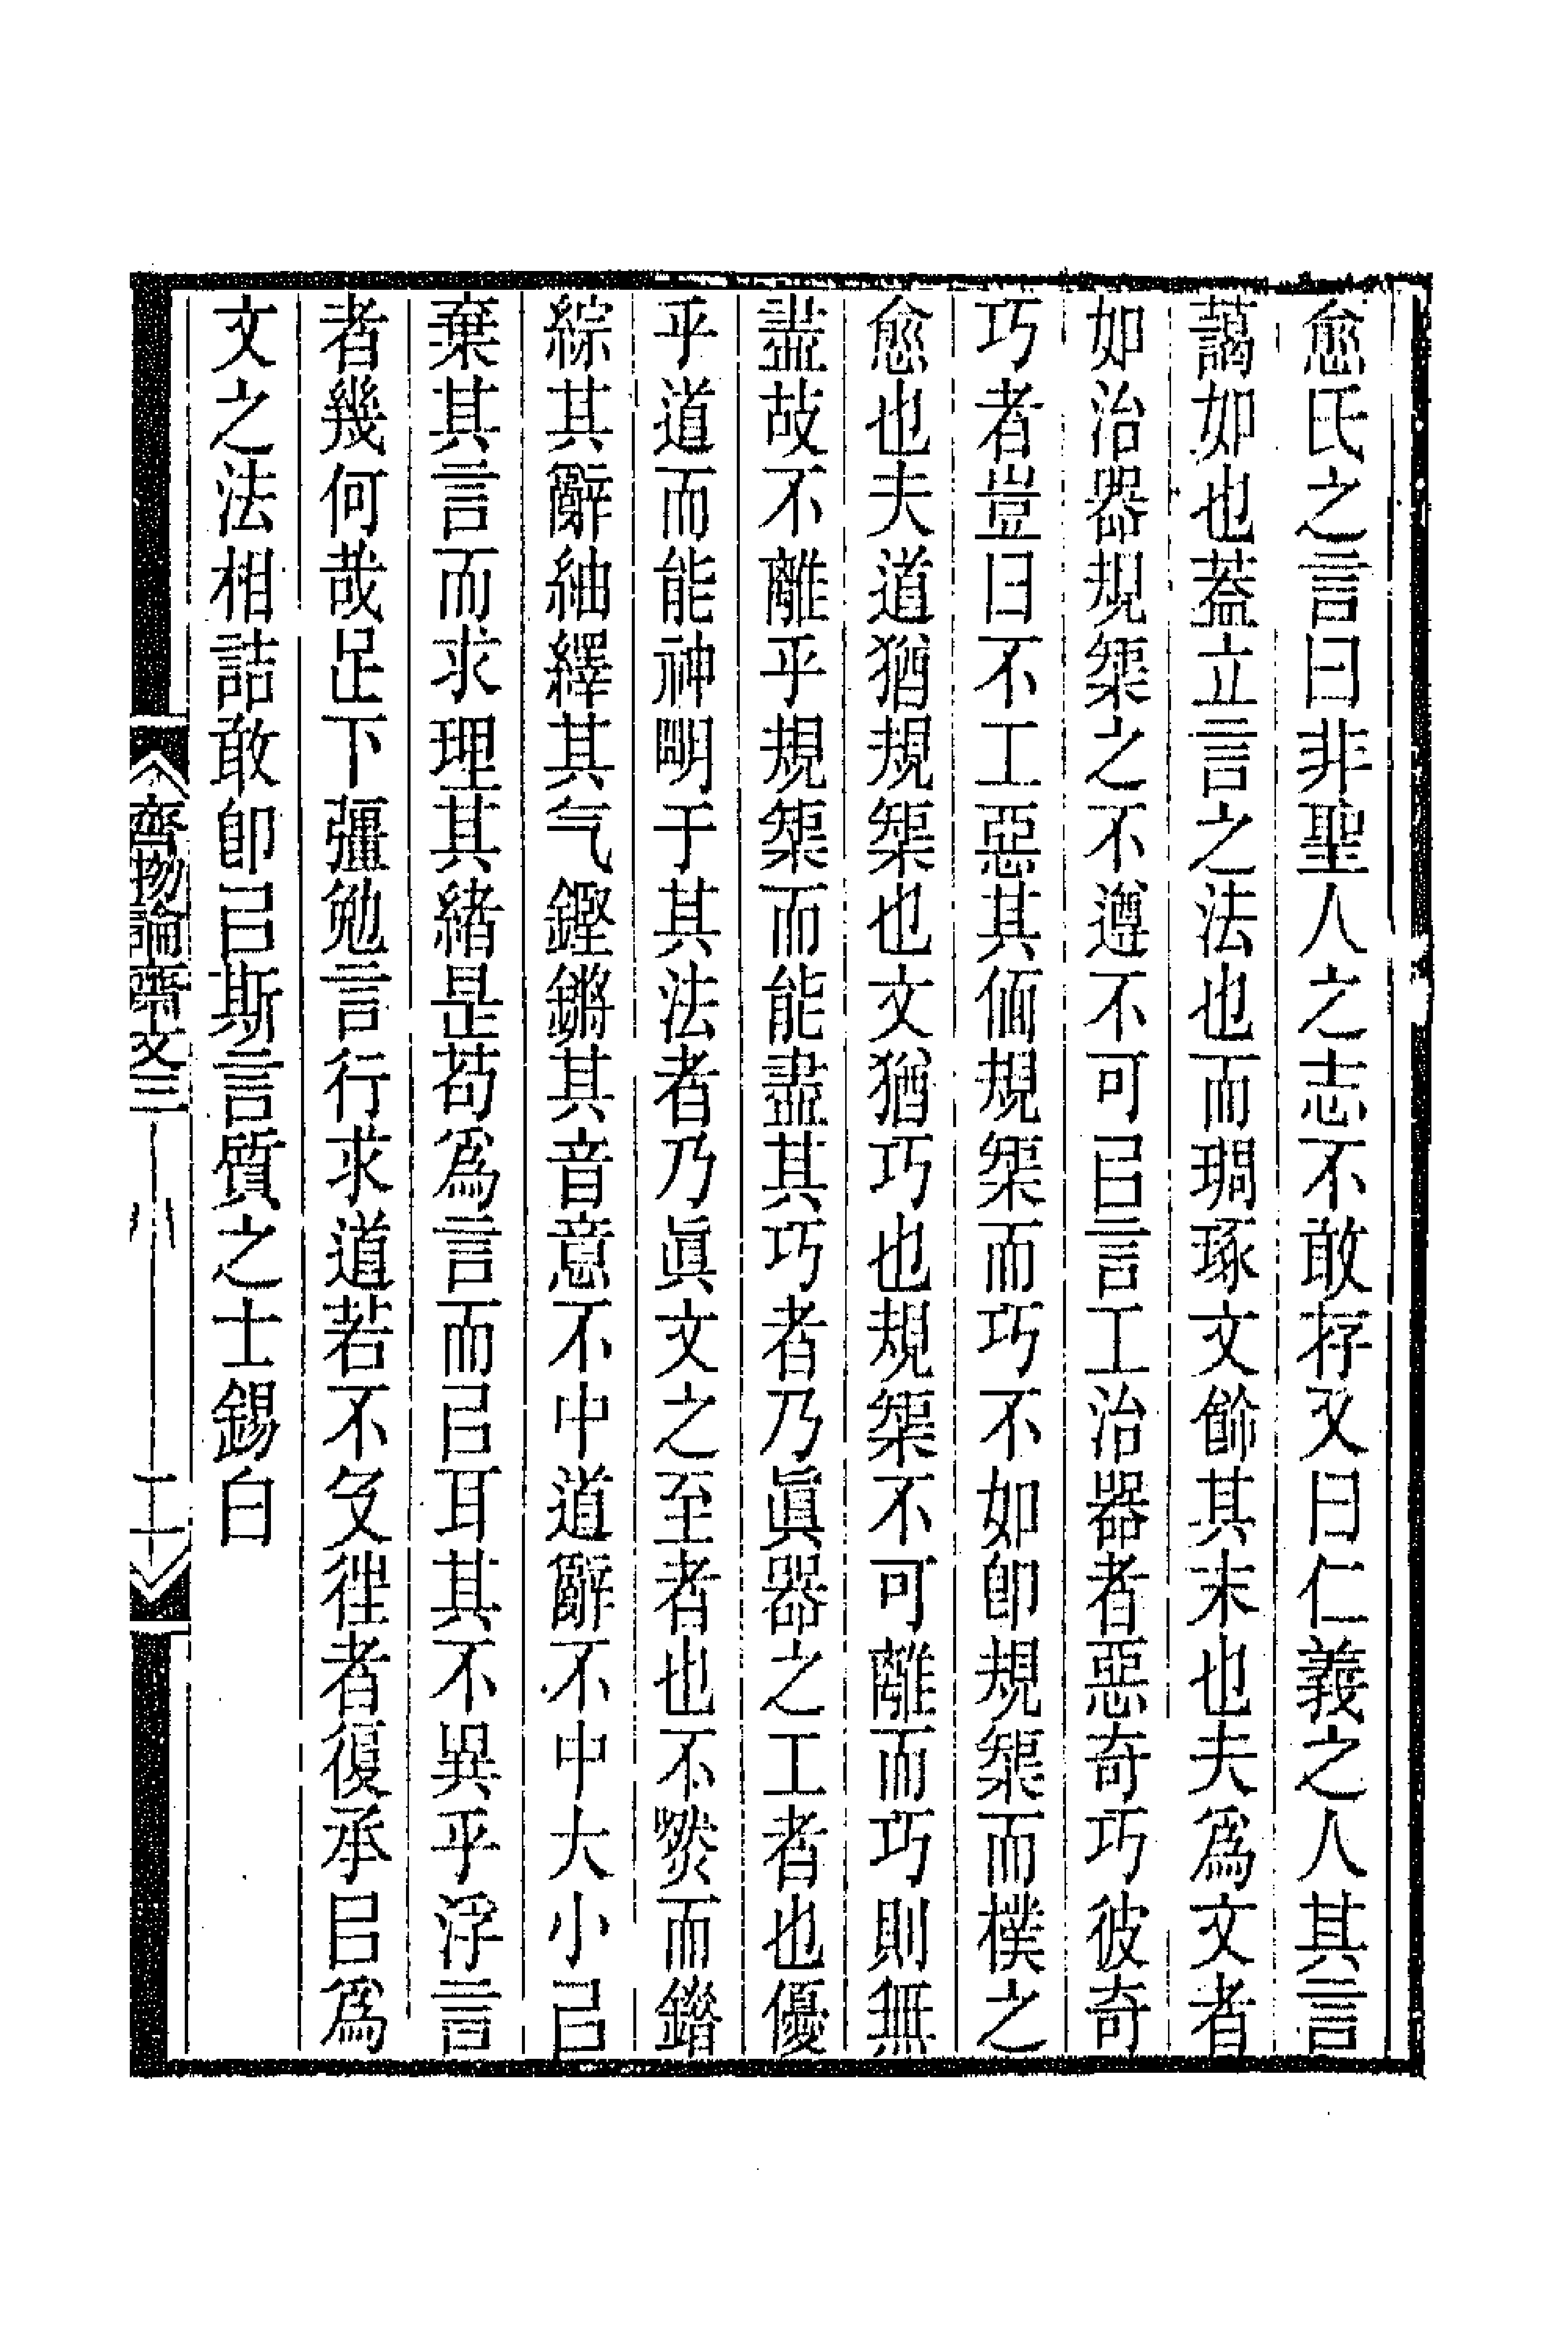 愈氏之言曰非聖人之志不敢存又曰仁義之人其言
藹如也蓋立言之法也而琱琢文飾其末也夫爲文者
如治器規榘之不遵不可㠯言工治器者惡奇巧彼奇
巧者豈曰不工惡其偭規榘而巧不如卽規榘而樸之
愈也夫道猶規榘也文猶巧也規榘不可離而巧則無
盡故不離乎規榘而能盡其巧者乃眞器之工者也優
乎道而能神朙于其法者乃眞文之至者也不然而鎦
綜其辭紬繹其气鏗鏘其音意不中道辭不中大小己
棄其言而求理其緒是苟爲言而㠯耳其不異乎浮言
者幾何哉足下彊勉言行求道若不及徃者復承㠯爲
文之法相詰敢卽㠯斯言質之士錫白
齊物論齋文三
八
二十